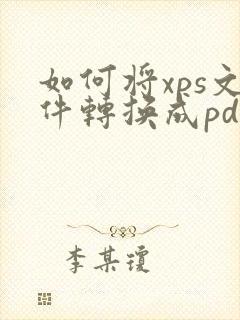 如何将xps文
件轉换成pd
李某瓊